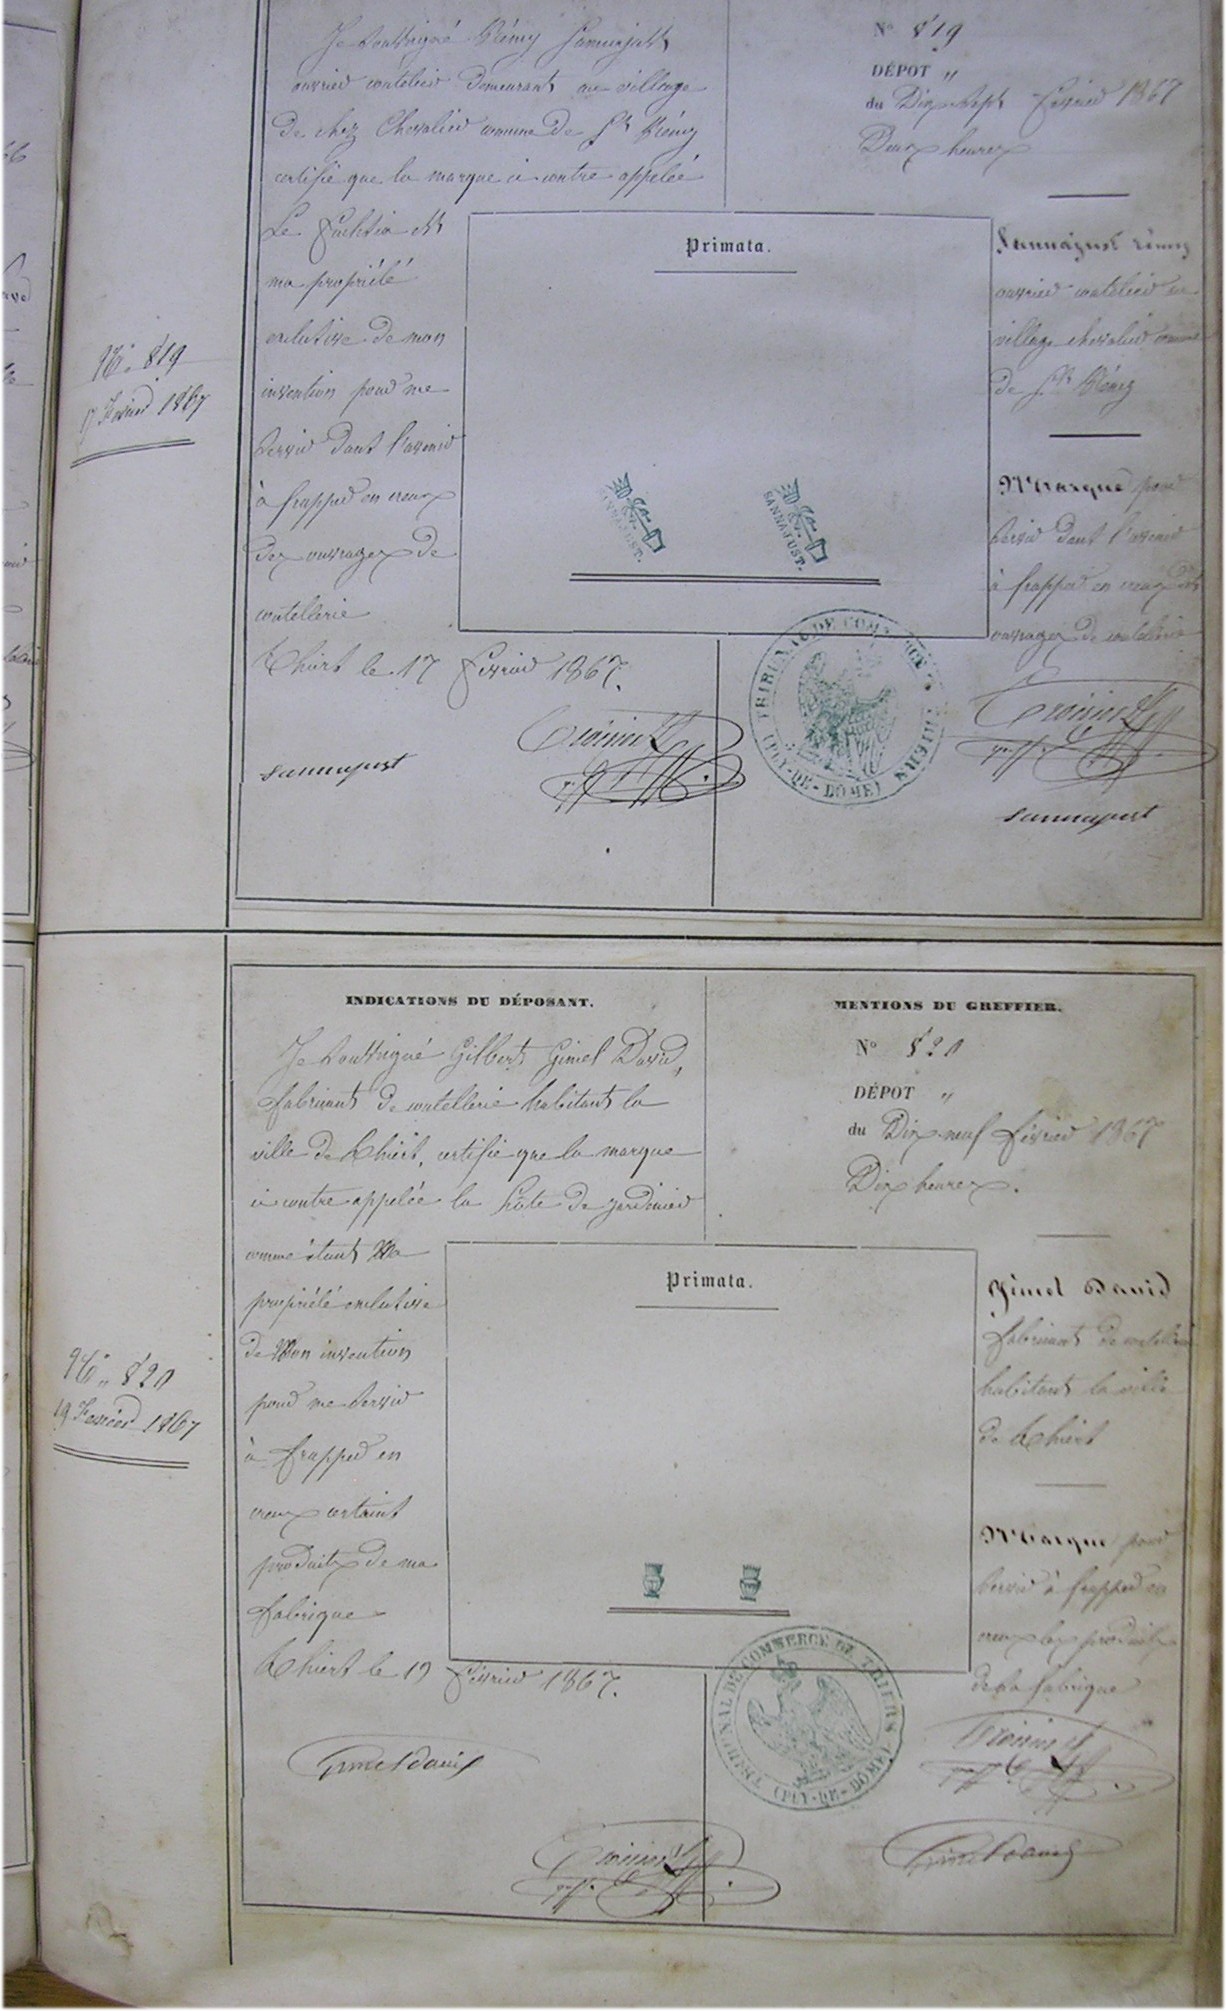 Nº 819
17 Fevrier 1867
Je soussigné Rémy Sannajust
ouvrier coutelier demeurant au village
de chez Chevalier commune de St Rémy
certifie que la marque ci contre appelée
Le est
ma propriété
exclusive de mon
invention pour me
servir dans l'avenir
à frapper en creux
des ouvrages de
coutellerie
Thiers le 17 février 1867.
sannajust
Primata.
SANNAJUST.
SANNAJUST.
Nº 819
DÉPOT "
du Dix sept Fevrier 1867
Deux heures
Sannajust rémy
ouvrier coutelier au
village chevalier commune
de St Rémy
Marque pour
servir dans l'avenir
à frapper en creux des
ouvrages de coutellerie
TRIBUNAL DE COMMERCE DE THIERS
(PUY-DE-DOME)
sannajust
Nº 820
19 Fevrier 1867
INDICATIONS DU DÉPOSANT.
Je soussigné Gilbert Gimel David,
fabricant de coutellerie habitant la
ville de Thiers, certifie que la marque
ci contre appelée la de jardinier
comme étant Ma
propriété exclusive
de Mon invention
pour me servir
à frapper en
creux certains
produits de ma
fabrique
Thiers le 19 février 1867.
Gimel David
Primata.
MENTIONS DU GREFFIER.
Nº 820
DÉPOT "
du Dix neuf février 1867
Dix heures.
Gimel David
fabricant de coutellerie
habitant la ville
de Thiers
Marque pour
servir à frapper en
creux les produits
de sa fabrique
TRIBUNAL DE COMMERCE DE THIERS
(PUY-DE-DOME)
Gimel David